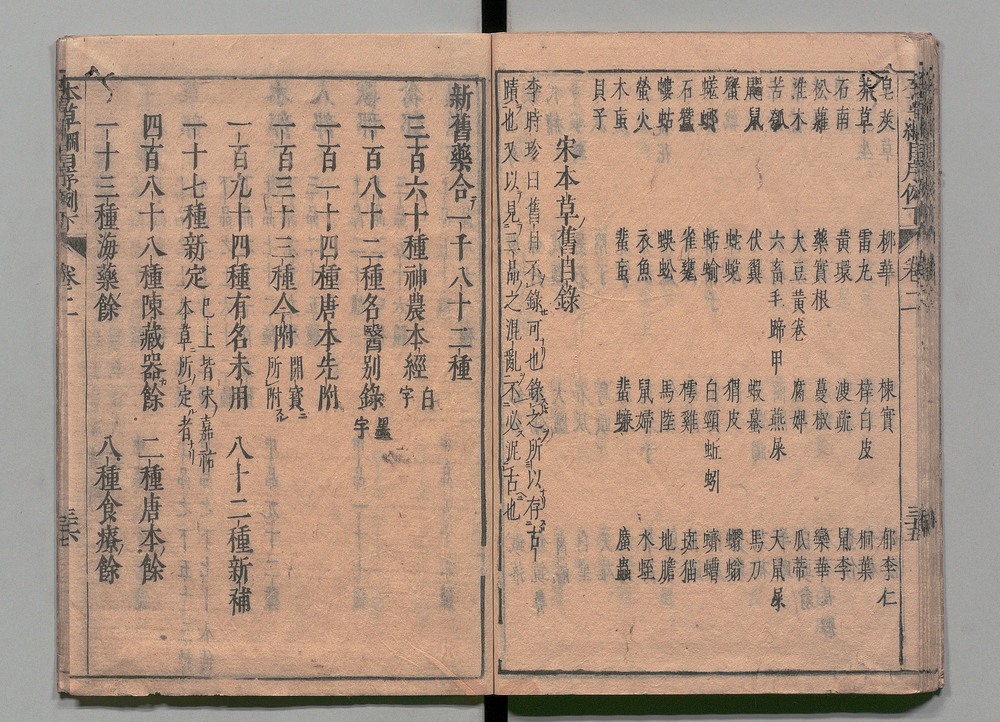 皂莢 柳華 楝實 郁李仁
莽草 雷丸 梓白皮 桐葉
石南 黃環 溲疏 鼠李
松蘿 藥實根 蔓椒 欒華
淮木 大豆黃卷 腐婢 瓜蒂
苦瓠 六畜毛蹄甲 燕屎 天鼠屎
鼺鼠 伏翼 蝦蟇 馬刀
蟹 蛇蛻 猬皮 蠮螉
蜣蜋 蛞蝓 白頸蚯蚓 蠐螬
石蠶 雀甕 樗雞 斑猫
螻蛄 蜈蚣 馬陸 地膽
螢火 衣魚 鼠婦 水蛭
木䖟 蜚䖟 蜚蠊 䗪蟲
貝子
宋本草舊目錄
李時珍曰舊目不錄可也錄之所以存古
蹟也又以見三品之混亂不必泥古也
新舊藥合一千八十二種
三百六十種神農本經白字
一百八十二種名醫別錄墨字
一百一十四種唐本先附
一百三十三種今附開寶所附
一百九十四種有名未用 八十二種新補
一十七種新定已上皆宋嘉祐本草所定者
四百八十八種陳藏器餘 二種唐本餘
一十三種海藥餘 八種食療餘
本草綱目序例下 卷二 三六